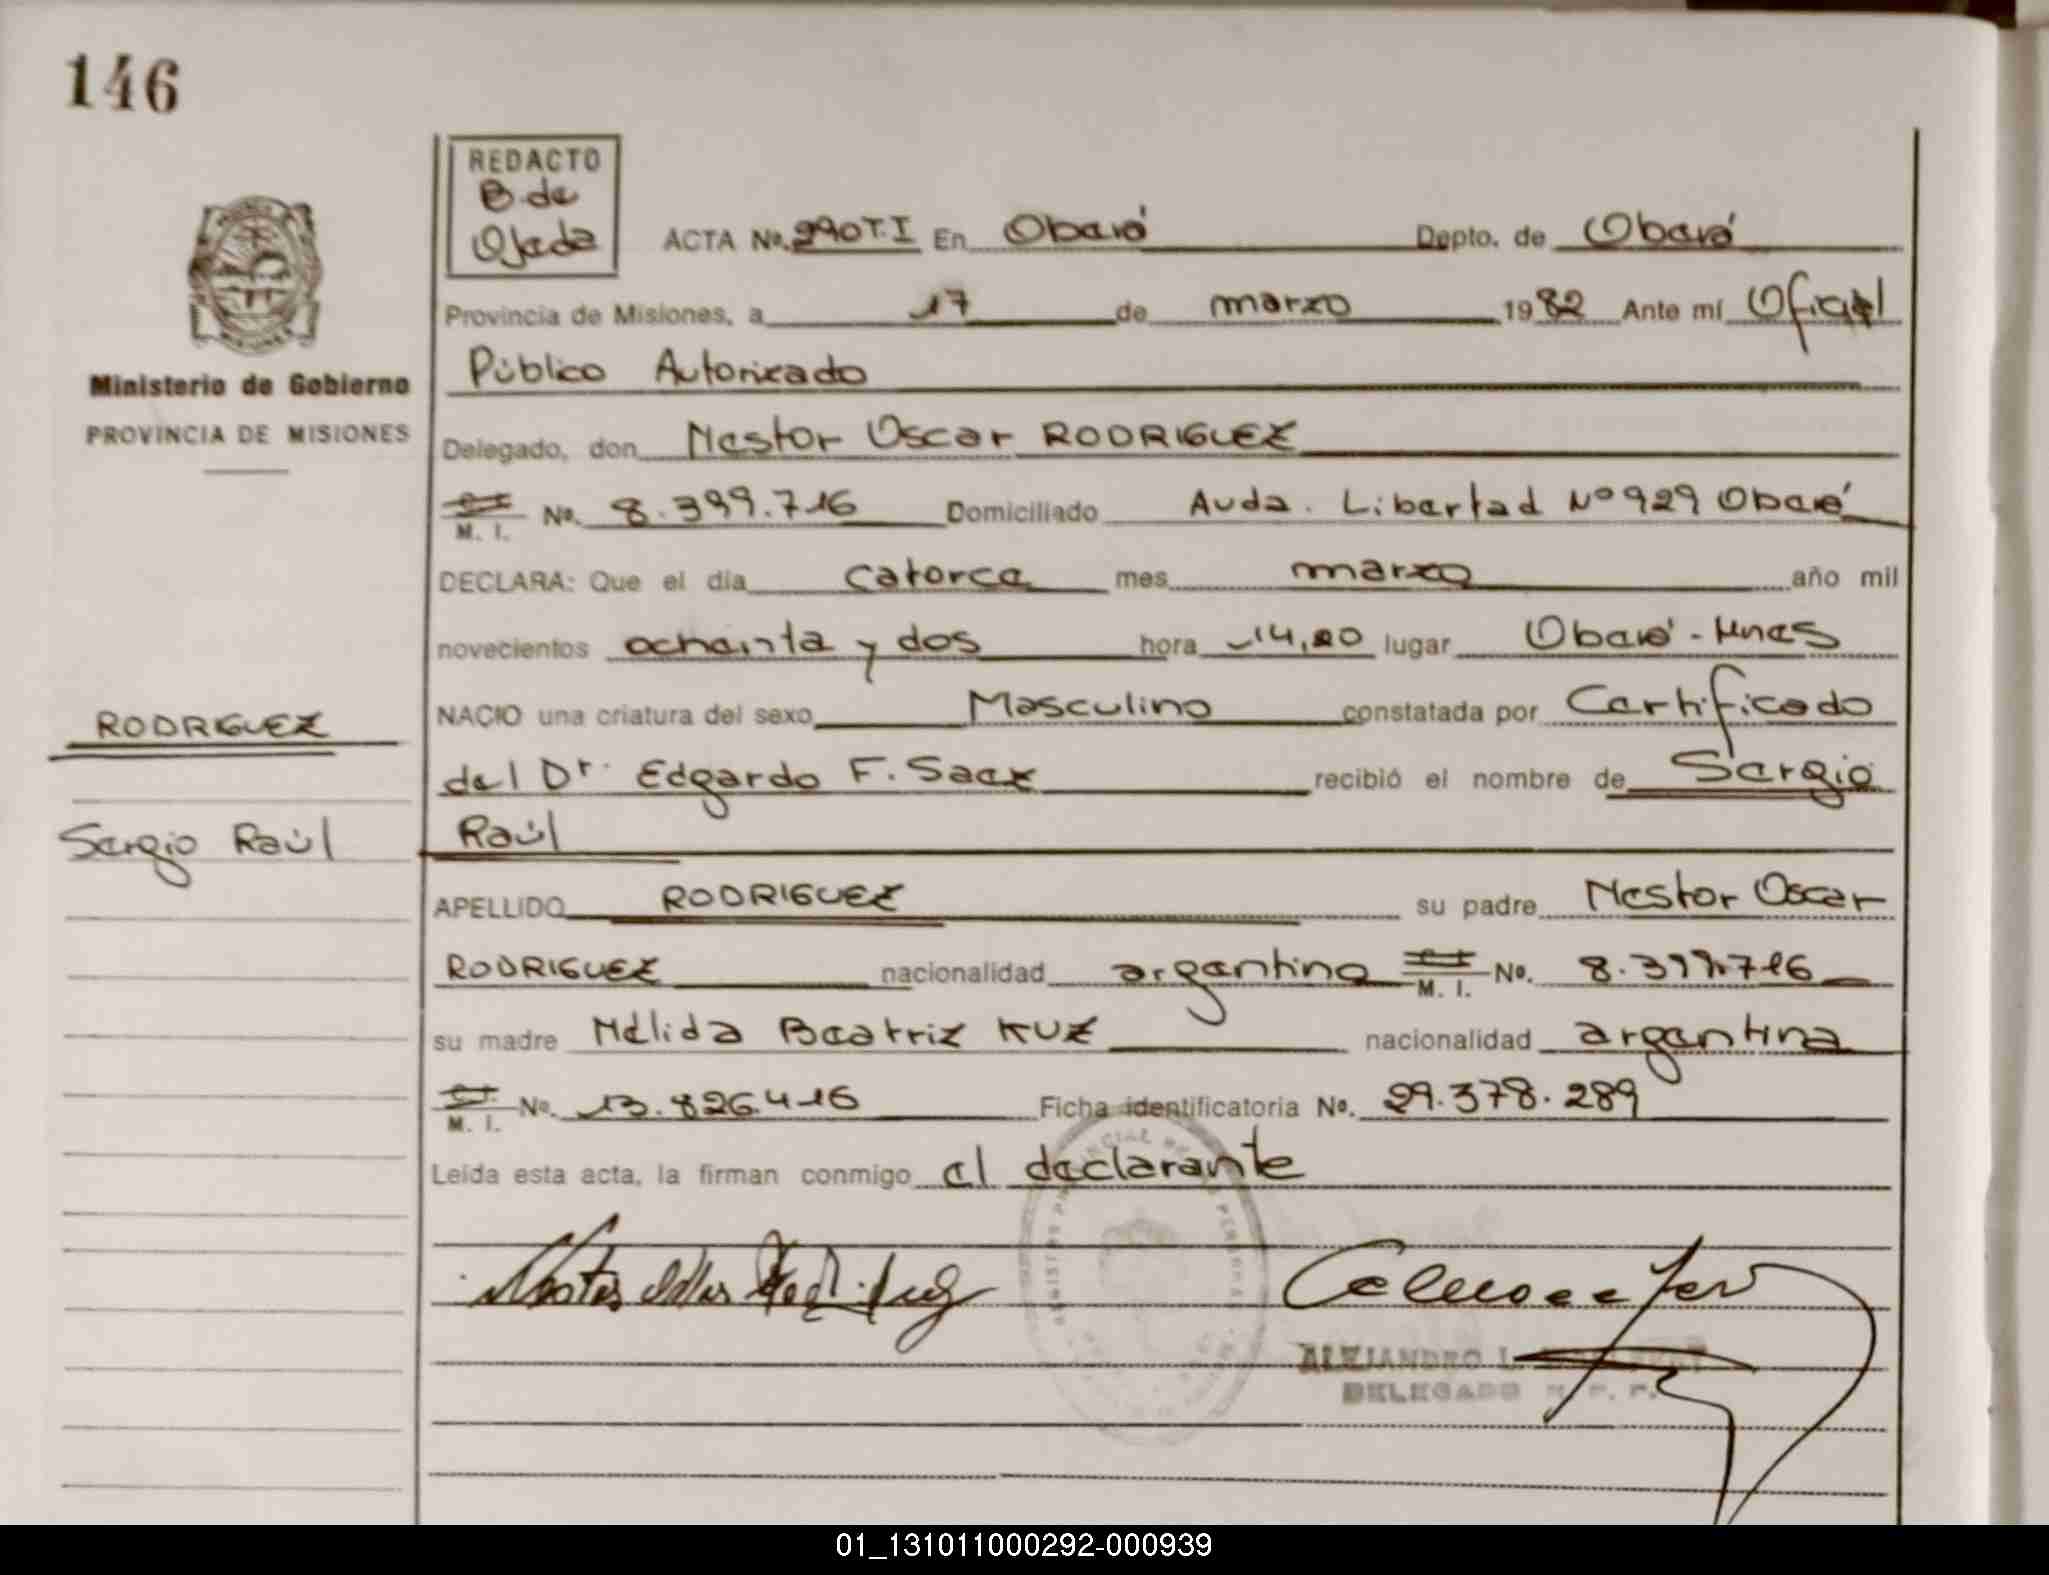 146
REDACTO
B. de
Ojeda
ACTA No. 290 T.I En Oberá Depto. de Oberá
Provincia de Misiones, a 17 de marzo 1982 Ante mí Oficial
Público Autorizado
Ministerio de Gobierno
PROVINCIA DE MISIONES
Delegado, don Nestor Oscar RODRIGUEZ
M. I. No. 8.399.716 Domiciliado Avda. Libertad Nº 929 Oberá
DECLARA: Que el día catorce mes marzo año mil
novecientos ochenta y dos hora 14,20 lugar Oberá - Mnes
NACIO una criatura del sexo Masculino constatada por Certificado
del Dr. Edgardo F. Saez recibió el nombre de Sergio
Raúl
RODRIGUEZ
Sergio Raúl
APELLIDO RODRIGUEZ su padre Nestor Oscar
RODRIGUEZ nacionalidad argentino M. I. No. 8.399.716
su madre Nélida Beatriz KUZ nacionalidad argentina
M. I. No. 13.826.416 Ficha identificatoria No. 29.378.289
Leída esta acta, la firman conmigo el declarante
ALEJANDRO L.
DELEGADO
01_131011000292-000939